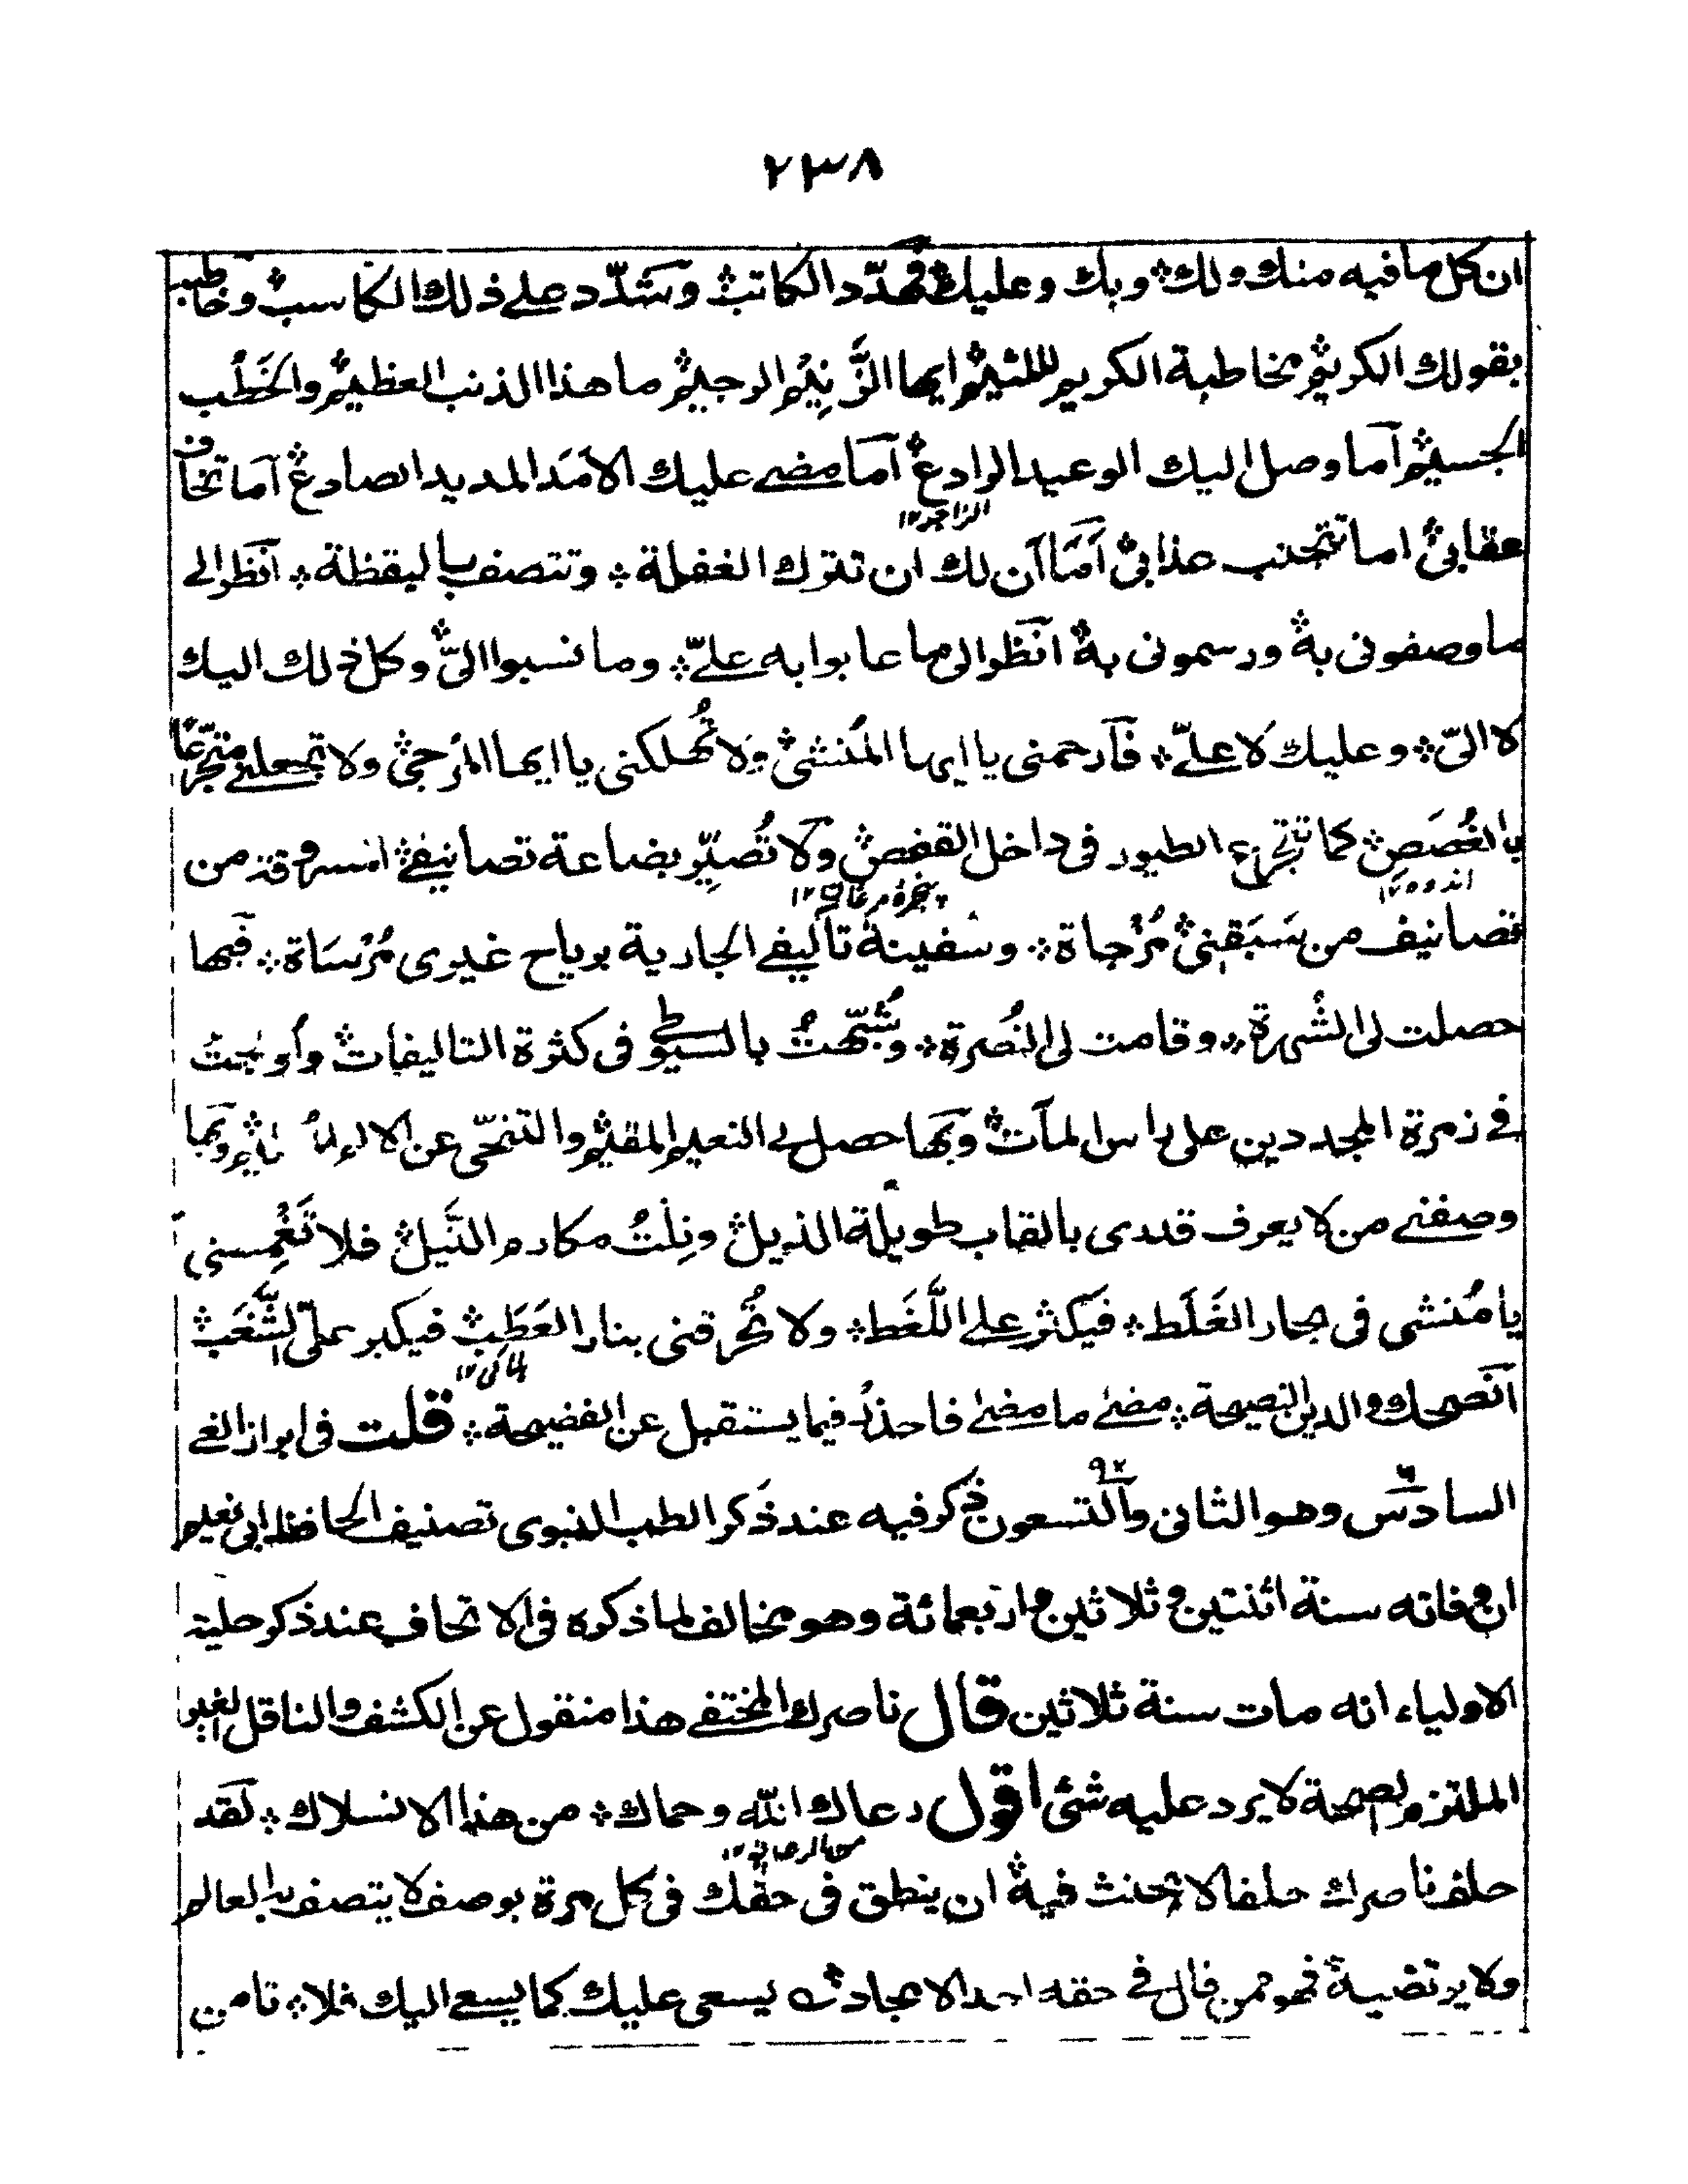 ٢٣٨
ان كل ما فيه منك ولك ۞ وبك وعليك ۞ فهدّد الكاتب ۞ وشدّد على ذلك الكاسب ۞ وخاطبه
بقولك الكريم ۞ مخاطبة الكريم للئيم ۞ ايها الزَّنِيْم الرجيم ۞ ما هذا الذنب العظيم ۞ والخَطْب
الجسيم ۞ آما وصل اليك الوعيد الرادع ۞ آما مضى عليك الاَمَد المديد الصادع ۞ آما تخاف
الزاجر ١٢
عقابى ۞ اما تتجنب عذابى ۞ آمَا آن لك ان تترك الغفلة ۞ وتتصف باليقظة ۞ آنظر الى
ما وصفونى به ۞ ورسمونى به ۞ انظر الى ما عابوا به علىّ ۞ وما نسبوا الىّ ۞ وكل ذلك اليك
لا الىّ ۞ وعليك لا علىّ ۞ فآرحمنى يا ايها المُنشئ ۞ ولا تُهلكنى يا ايها المُرجئ ۞ ولا تجعلنى متجرّعًا
بالغُصَصِ ۞ كما تتجرع الطيور فى داخل القفص ۞ ولا تُصيِّر بضاعة تصانيفى ۞ المسروقة من
اندوه ١٢ پنجرۀ مرغان ١٢
تصانيف من سَبَقنى ۞ مُزْجاة ۞ وسفينة تآليفى الجارية برياح غيرى مُرْسَاة ۞ فبها
حصلت لى الشُهرة ۞ وقامت لى النُصرة ۞ وشُبِّهتُ بالسيوطى فى كثرة التاليفات ۞ وأُولجتُ
فى زمرة المجددين على راس المآت ۞ وبها حصل لى النعيم المقيم ۞ والتنحّى عن ۞ وبما
وصفنى من لا يعرف قدرى بالقاب طويلة الذيل ۞ ونِلْتُ مكارم النَّيل ۞ فلا تَغْمِسنى
يا مُنشى فى بحار الغَلَط ۞ فيكثر على اللَّغَط ۞ ولا تُحرقنى بنار العَطَب ۞ فيكبر علىّ الشَّغَب ۞
هلاكى ١٢
آنصحك والدين النصيحة ۞ مضى ما مضى فاحذر فيما يستقبل عن الفضيحة ۞ قلت فى ابراز الغى
السادس وهو الثانى والتسعون ٩٢ ذكر فيه عند ذكر الطب النبوى تصنيف الحافظ ابى نعيم
ان وفاته سنة اثنتين وثلاثين واربعمائة وهو مخالف لما ذكره فى الاتحاف عند ذكر حلية
الاولياء انه مات سنة ثلاثين قال ناصرك المختفى هذا منقول عن الكشف والناقل الغير
الملتزم لصحة لا يرد عليه شئ اقول رعاك الله وحماك ۞ من هذا الانسلاك ۞ لقد
من الرعاية ١٢
حلف ناصرك حلفا لا يحنث فيه ۞ ان ينطق فى حقك فى كل مرة بوصف لا يتصف به العالم
ولا يرتضيه ۞ فهو ممن قال فى حقه احد الامجاد ۞ يسعى عليك كما يسعى اليك فلا ۞ تامن